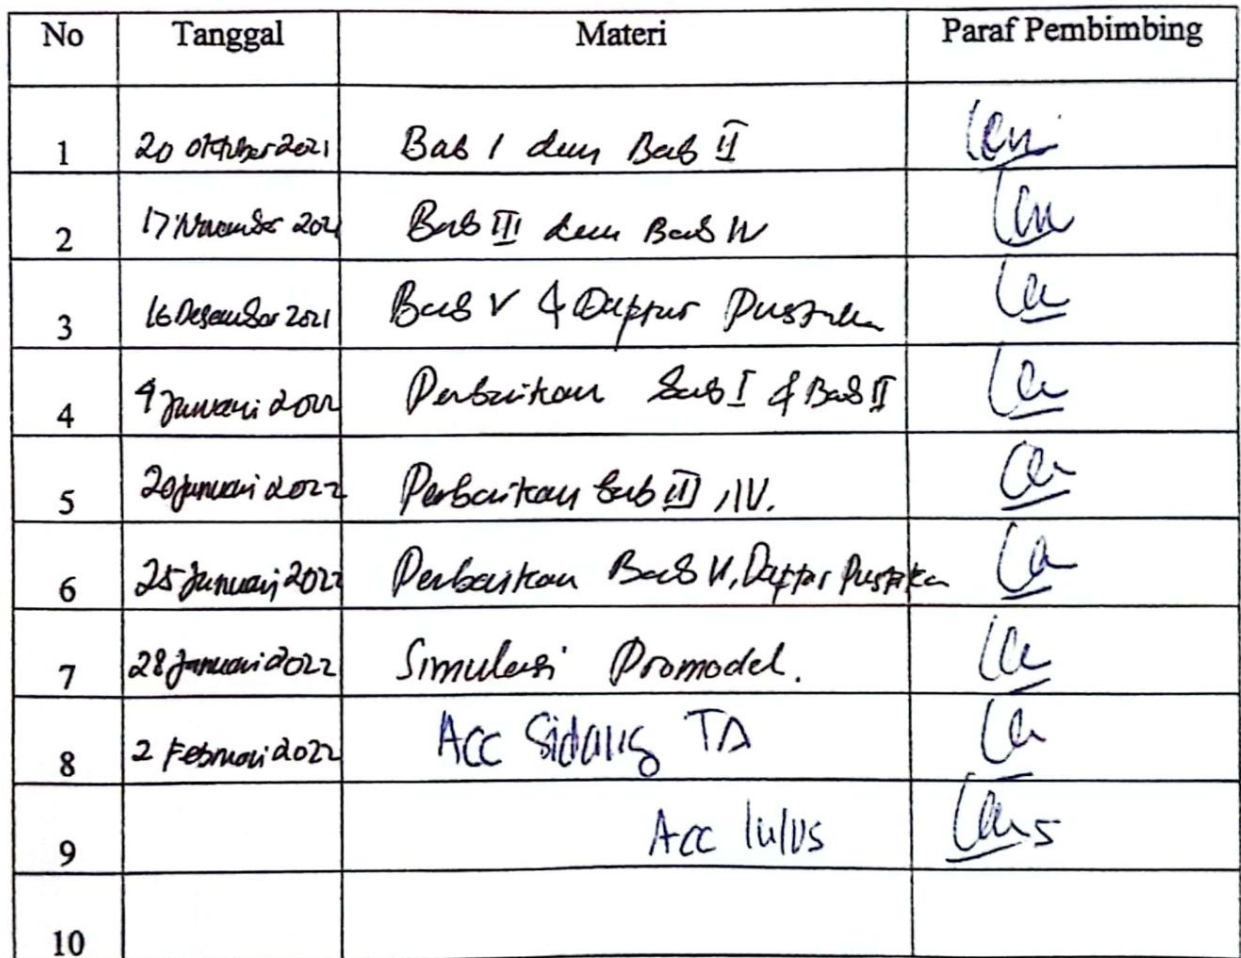 No Tanggal Materi Paraf Pembimbing
1 20 Oktober 2021 Bab I dan Bab II
2 17 November 2021 Bab III dan Bab IV
3 16 Desember 2021 Bab V & Daftar Pustaka
4 4 Januari 2022 Perbaikan Bab I & Bab II
5 20 Januari 2022 Perbaikan Bab III, IV.
6 25 Januari 2022 Perbaikan Bab V, Daftar Pustaka
7 28 Januari 2022 Simulasi Promodel.
8 2 Februari 2022 Acc Sidang TA
9 Acc lulus
10